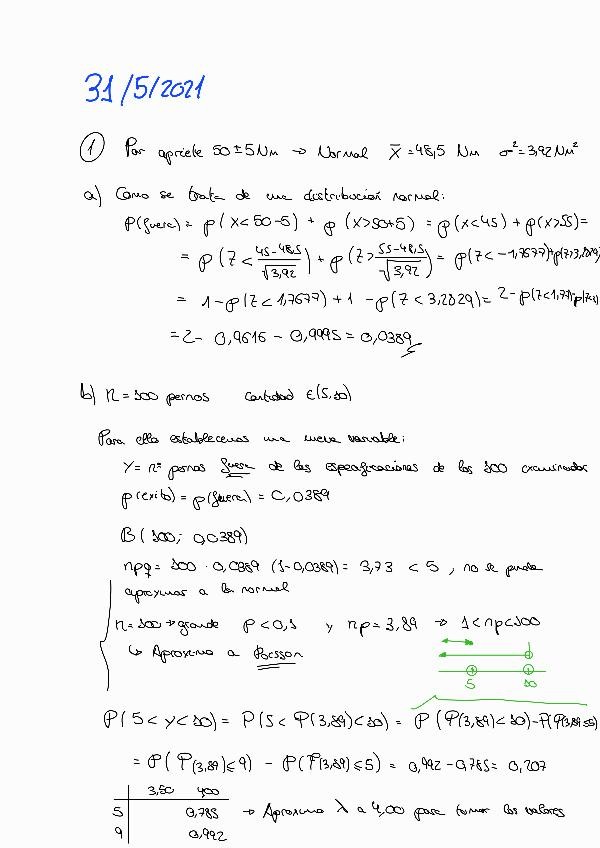 31/5/2021
1 Par apriete 50 ± 5 Nm → Normal X̄ = 48,5 Nm σ² = 3,92 Nm²
a) Como se trata de una distribución normal:
P(fuera) = p(X<50-5) + p(X>50+5) = p(x<45) + p(x>55) =
= p(Z < (45-48,5)/√3,92) + p(Z > (55-48,5)/√3,92) = p(Z < -1,7677) + p(Z>3,2829)
= 1 - p(Z < 1,7677) + 1 - p(Z < 3,2829) = 2 - p(Z<1,77) - p(Z<
= 2 - 0,9616 - 0,9995 = 0,0389
b) n = 100 pernos cantidad ∈ (5,10)
Para ello establecemos una nueva variable:
Y = nº pernos fuera de las especificaciones de los 100 examinados
p(exito) = p(fuera) = 0,0389
B(100; 0,0389)
npq = 100 · 0,0389 (1-0,0389) = 3,73 < 5, no se puede
aproximar a la normal
n = 100 → grande p < 0,1 y np = 3,89 → 1 < np < 100
↳ Aproximo a Poisson
5 10
P(5 < y < 10) = P(5 < P(3,89) < 10) = P(P(3,89) < 10) - P(P(3,89) ≤ 5)
= P(P(3,89) ≤ 9) - P(P(3,89) ≤ 5) = 0,992 - 0,785 = 0,207
3,50 4,00
5 0,785 → Aproximo λ a 4,00 para tomar los valores
9 0,992